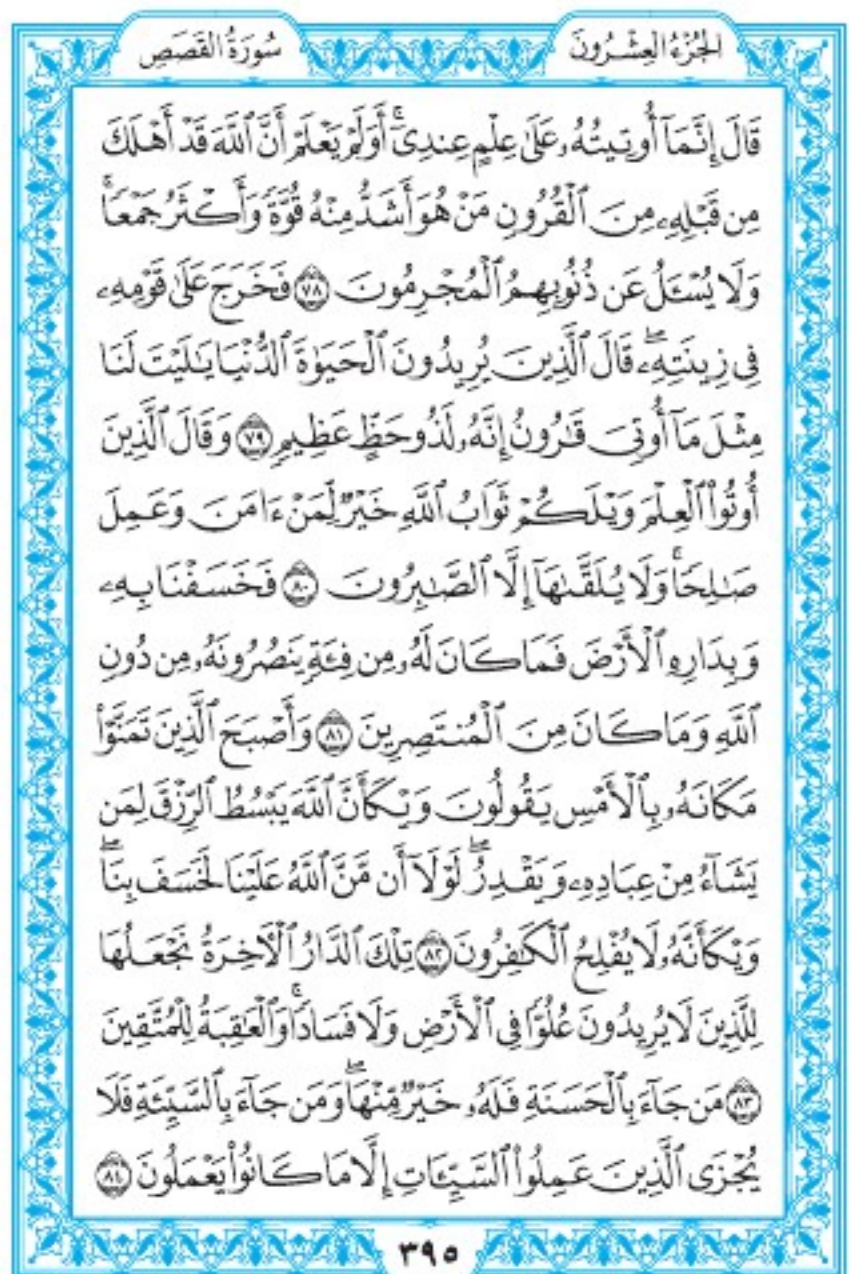 الجُزْءُ العِشْرُونَ
سُورَةُ القَصَصِ
قَالَ إِنَّمَآ أُوتِيتُهُۥ عَلَىٰ عِلْمٍ عِندِىٓۚ أَوَلَمْ يَعْلَمْ أَنَّ ٱللَّهَ قَدْ أَهْلَكَ
مِن قَبْلِهِۦ مِنَ ٱلْقُرُونِ مَنْ هُوَ أَشَدُّ مِنْهُ قُوَّةً وَأَكْثَرُ جَمْعًاۚ
وَلَا يُسْـَٔلُ عَن ذُنُوبِهِمُ ٱلْمُجْرِمُونَ ٧٨ فَخَرَجَ عَلَىٰ قَوْمِهِۦ
فِى زِينَتِهِۦۖ قَالَ ٱلَّذِينَ يُرِيدُونَ ٱلْحَيَوٰةَ ٱلدُّنْيَا يَٰلَيْتَ لَنَا
مِثْلَ مَآ أُوتِىَ قَٰرُونُ إِنَّهُۥ لَذُو حَظٍّ عَظِيمٍ ٧٩ وَقَالَ ٱلَّذِينَ
أُوتُوا۟ ٱلْعِلْمَ وَيْلَكُمْ ثَوَابُ ٱللَّهِ خَيْرٌ لِّمَنْ ءَامَنَ وَعَمِلَ
صَٰلِحًاۚ وَلَا يُلَقَّىٰهَآ إِلَّا ٱلصَّٰبِرُونَ ٨٠ فَخَسَفْنَا بِهِۦ
وَبِدَارِهِ ٱلْأَرْضَ فَمَا كَانَ لَهُۥ مِن فِئَةٍ يَنصُرُونَهُۥ مِن دُونِ
ٱللَّهِ وَمَا كَانَ مِنَ ٱلْمُنتَصِرِينَ ٨١ وَأَصْبَحَ ٱلَّذِينَ تَمَنَّوْا۟
مَكَانَهُۥ بِٱلْأَمْسِ يَقُولُونَ وَيْكَأَنَّ ٱللَّهَ يَبْسُطُ ٱلرِّزْقَ لِمَن
يَشَآءُ مِنْ عِبَادِهِۦ وَيَقْدِرُۖ لَوْلَآ أَن مَّنَّ ٱللَّهُ عَلَيْنَا لَخَسَفَ بِنَاۖ
وَيْكَأَنَّهُۥ لَا يُفْلِحُ ٱلْكَٰفِرُونَ ٨٢ تِلْكَ ٱلدَّارُ ٱلْءَاخِرَةُ نَجْعَلُهَا
لِلَّذِينَ لَا يُرِيدُونَ عُلُوًّا فِى ٱلْأَرْضِ وَلَا فَسَادًاۚ وَٱلْعَٰقِبَةُ لِلْمُتَّقِينَ
٨٣ مَن جَآءَ بِٱلْحَسَنَةِ فَلَهُۥ خَيْرٌ مِّنْهَاۖ وَمَن جَآءَ بِٱلسَّيِّئَةِ فَلَا
يُجْزَى ٱلَّذِينَ عَمِلُوا۟ ٱلسَّيِّـَٔاتِ إِلَّا مَا كَانُوا۟ يَعْمَلُونَ ٨٤
٣٩٥